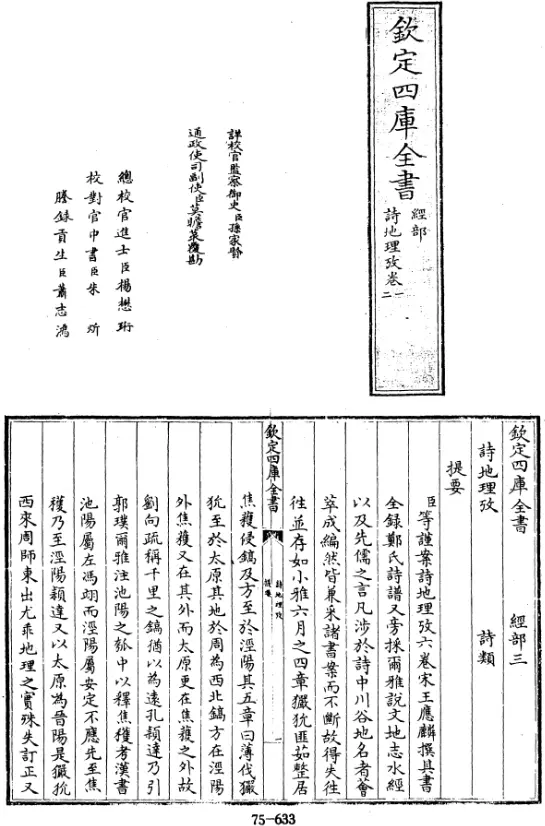 欽定四庫全書
經部
詩地理攷卷一
二
詳校官監察御史臣孫家賢
通政使司副使臣莫瞻菉覆勘
總校官進士臣楊懋珩
校對官中書臣朱炘
謄錄貢生臣蕭志鴻
欽定四庫全書 經部三
詩地理攷 詩類
提要
臣等謹案詩地理攷六卷宋王應麟撰其書
全錄鄭氏詩譜又旁採爾雅說文地志水經
以及先儒之言凡涉於詩中川谷地名者會
萃成編然皆兼采諸書案而不斷故得失往
往並存如小雅六月之四章玁狁匪茹整居
欽定四庫全書
詩地理攷
提要
一
焦穫侵鎬及方至於涇陽其五章曰薄伐玁
狁至於太原其地於周為西北鎬方在涇陽
外焦穫又在其外而太原更在焦穫之外故
劉向疏稱千里之鎬猶以為遠孔穎達乃引
郭璞爾雅注池陽之瓠中以釋焦穫考漢書
池陽屬左馮翊而涇陽屬安定不應先至焦
穫乃至涇陽穎達又以太原為晉陽是玁狁
西來周師東出尤乖地理之實殊失訂正又
75-633